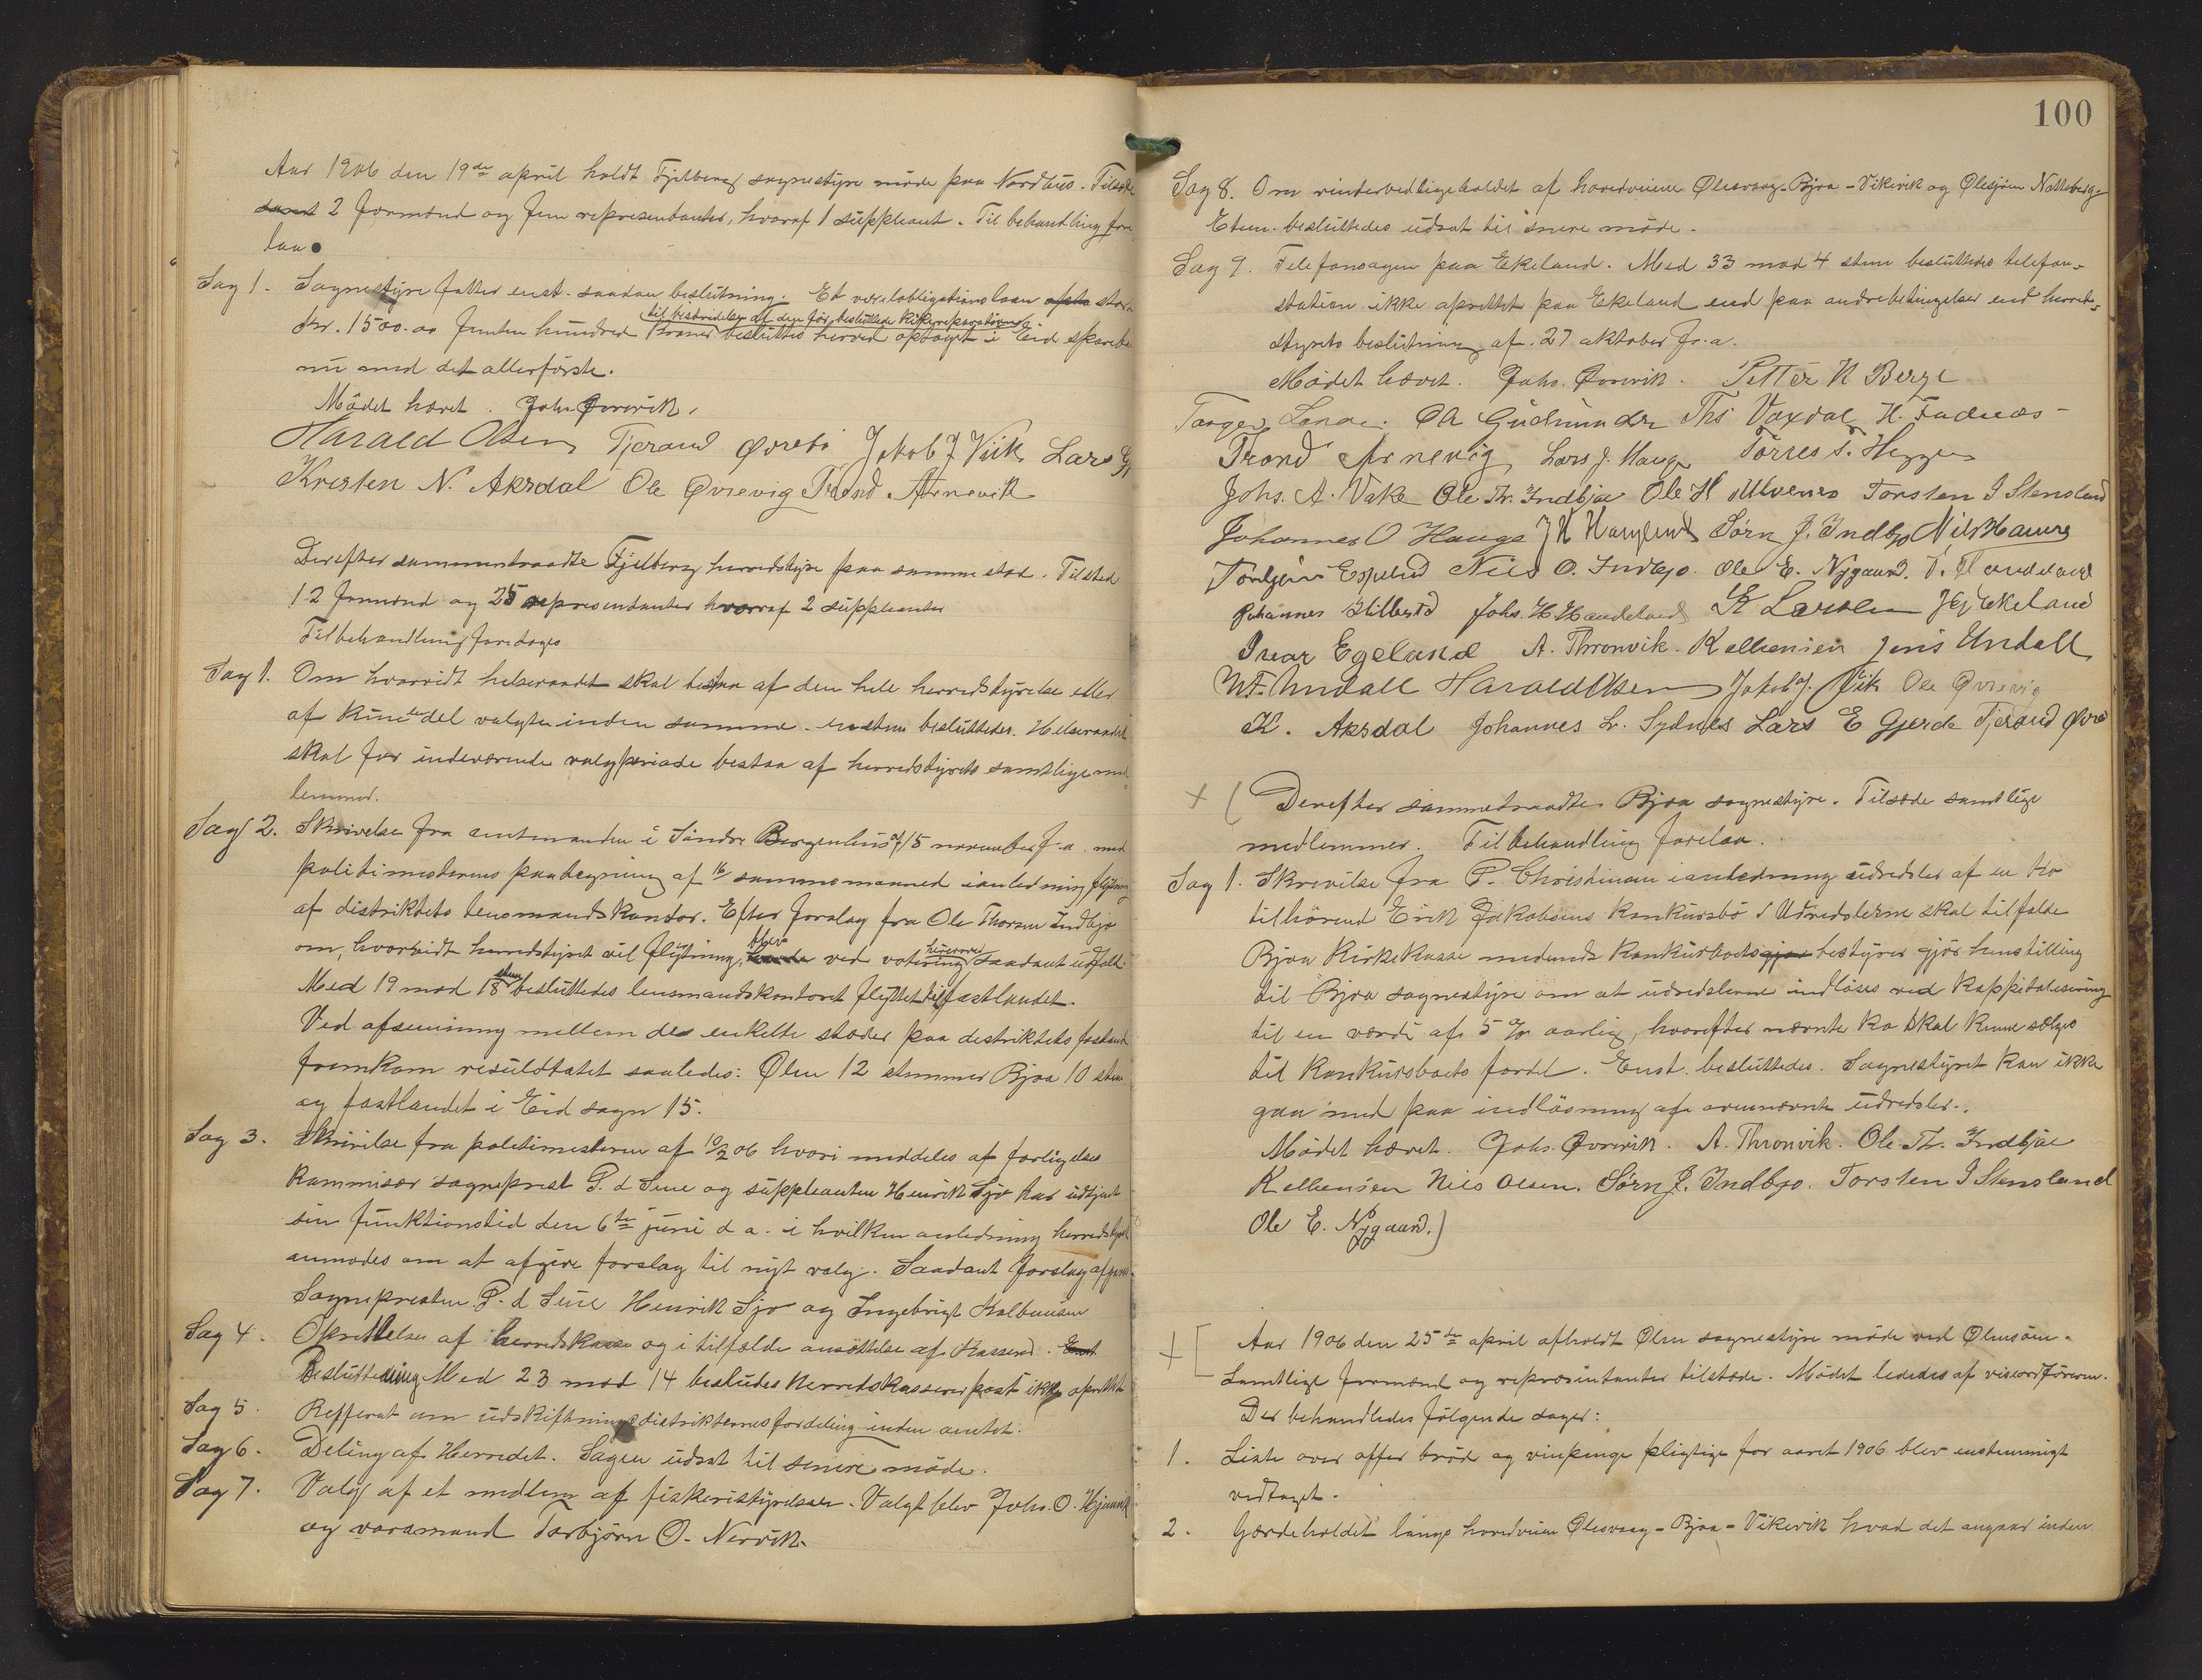 Aar 1906 den 19de april holdt Fjelberg sognestyre møde paa Nordhus. Tilstede
samt 2 formænd og fem representanter, hvoraf 1 suppleant. Til behandling fore
laa
Sag 1. Sognestyre fatter enst. saadan beslutning: Et vexelobligationslaan stort
kr. 1500.00 femten hundred kroner besluttes herved optaget i Eid spareba
til bestridelse af den før besluttede kirkereparation
nu med det allerførste.
Mødet hævet. Johs. Øvrevik.
Harald Olsen Tjerand Øvrebø Jakob J Viik Lars
Kristen N. Aksdal Ole Øvrevig Trond Arnevik
Derefter sammentraadte Fjelberg herredstyre paa samme sted. Tilsted
12 formænd og 25 representanter hvoraf 2 suppleanter
Til behandling foretoges
Sag 1. Om hvorvidt helseraadet skal bestaa af den hele herredstyrelse eller
af kun del valgte inden samme. besluttedes. Helseraadet
skal for indeværende valgperiode bestaa af herredstyrets samtlige med
lemmer.
Sag 2. Skrivelse fra amtmanden i Søndre Bergenhus af 15 november f.a. med
politimesterens paategning af 16/ samme maaned i anledning flytning
af distriktets lensmandskontor. Efter forslag fra Ole Thorsen Indbjo
om, hvorvidt herredstyret vil flytning, blev ved votering herover saadant udfald.
Med 19 mod 18 stem besluttedes lensmandskontoret flyttet til fastlandet.
Ved afstemning mellem de enkelte steder paa distriktets fastland
fremkom resuldtatet saaledes: Ølen 12 stemmer Bjoa 10 stem
og fastlandet i Eid sogn 15.
Sag 3. Skrivelse fra politimesteren af 10/2 06 hvori meddeles at forligelses
kommisær sogneprest P. d Seue og suppleanten Henrik Sjo har udtjent
sin funktionstid den 6te juni d a. i hvilken anledning herredstyret
anmodes om at afgive forslag til nyt valg. Saadant forslag afgaves.
Sognepresten P. d Seue Henrik Sjo og Ingebrigt Kalbeinsen
Sag 4. Oprettelse af herredskasse og i tilfælde ansættelse af kasserer. Enst
Beslutning Med 23 mod 14 besludes Herredskassererpost ikke oprettet
Sag 5. Refferat om udskiftningsdistrikternes fordeling inden amtet.
Sag 6. Deling af Herredet. Sagen udsat til senere møde.
Sag 7. Valg af et medlem af fiskeristyrelsen. Valgt blev Johs. O. Hjemvik
og varamand Torbjørn O. Nervik.
100
Sag 8. Om vintervedligeholdet af hovedveiene Ølesvaag-Bjoa-Vikevik og Ølesjøen
Etern. besluttedes udsat til senere møde.
Sag 9. Telefonsagen paa Ekeland. Med 33 mod 4 stem besluttedes telefon-
station ikke oprettet paa Ekeland end paa andre betingelser end herred-
styrets beslutning af. 27 oktober f.a.
Mødet hævet. Johs. Øvrevik. Petter N Berge
OA Gudmundsen Ths Vaxdal H. Fadnæs
Trond Arnevig Lars J. Hauge Torres T. Hegge
Johs. A. Vake Ole Th. Indbjoe Ole H Ulvenes Torsten I Stensland
Johannes O Hauge JH Hauglund Sørn J. Indbjo Nils Hauge
Torbjørn Espelid Nils O. Indbjo. Ole E. Nygaard.
Johannes Johs. H. Handeland K Larsen Ekeland
Ivar Egeland A. Thronvik. Kalbensen Jens Undall
Undall Harald Olsen Jakob J. Vik Ole Øvrevig
K. Aksdal Johannes Lr. Sydnes Lars E Gjerde Tjerand Øvre
+ ( Derefter sammetraadte Bjoa sognestyre. Tilstede samtlige
medlemmer. Til behandling forelaa.
Sag 1. Skrivelse fra P. Christensen i anledning udredsler af en ko
tilhørend Erik Jakobsens konkursbo / Udredslerne skal tilfalde
Bjoa Kirkekasse medende konkursboets gjør bestyrer gjør henstilling
til Bjoa sognestyre om at udredslerne indløses ved kappitalisering
til en værdi af 5 % aarlig, hvorefter nævnte ko skal kunne sælges
til konkursboets fordel. Enst. besluttedes. Sognestyret kan ikke
gaa med paa indløsning af ovennævnte udredsler.
Mødet hævet. Johs. Øvrevik. A. Thronvik. Ole Th. Indbjoe
Kalbensen Nils Olsen. Sørn J. Indbjo. Torsten I Stensland
Ole E. Nygaard.)
+ [ Aar 1906 den 25de april afholdt Ølen sognestyre møde ved Ølensøen.
Samtlige formænd og repræsentanter tilstede. Mødet lededes af viseordføreren.
Der behandledes følgende sager:
1. Liste over offer brød og vinpenge pligtige for aaret 1906 blev enstemmigt
vedtaget.
2. Gjærdeholdet langs hovedveien Ølesvaag-Bjoa-Vikevik hvad det angaar inden